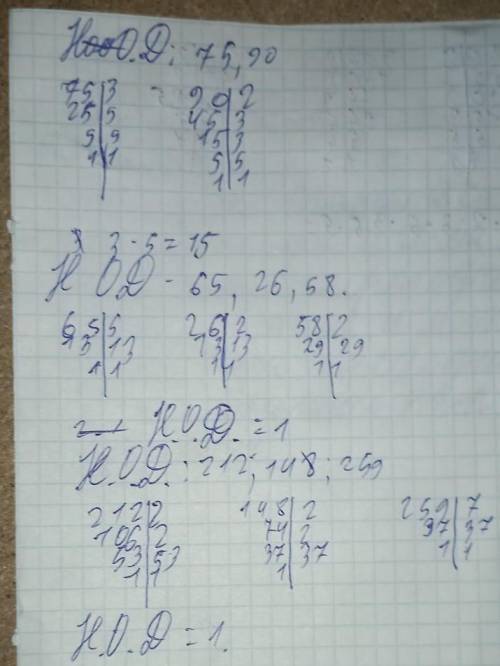 Н.О.Д: 75, 90
75 | 3   90 | 2
25 | 5   45 | 3
5 | 5   15 | 3
1 | 1   5 | 5
1 | 1
3 · 5 = 15
Н ОД - 65, 26, 58.
65 | 5   26 | 2   58 | 2
13 | 13   13 | 13   29 | 29
1 | 1   1 | 1   1 | 1
Н.О.Д. = 1
Н.О.Д. : 212; 148; 259
212 | 2   148 | 2   259 | 7
106 | 2   74 | 2   37 | 37
53 | 53   37 | 37   1 | 1
1 | 1   1
Н.О.Д = 1.